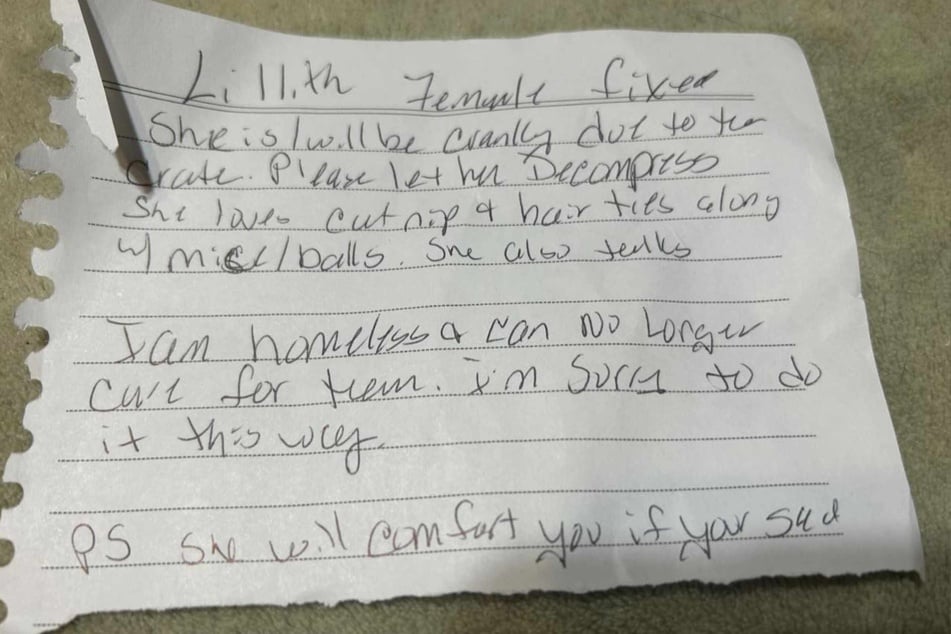 Lillith Female fixed
She is/will be cranky due to the
crate. Please let her Decompress
She loves catnip & hair ties along
w/ mice/balls. She also talks
I am homeless & can no longer
care for them. I'm sorry to do
it this way.
PS she will comfort you if your sad